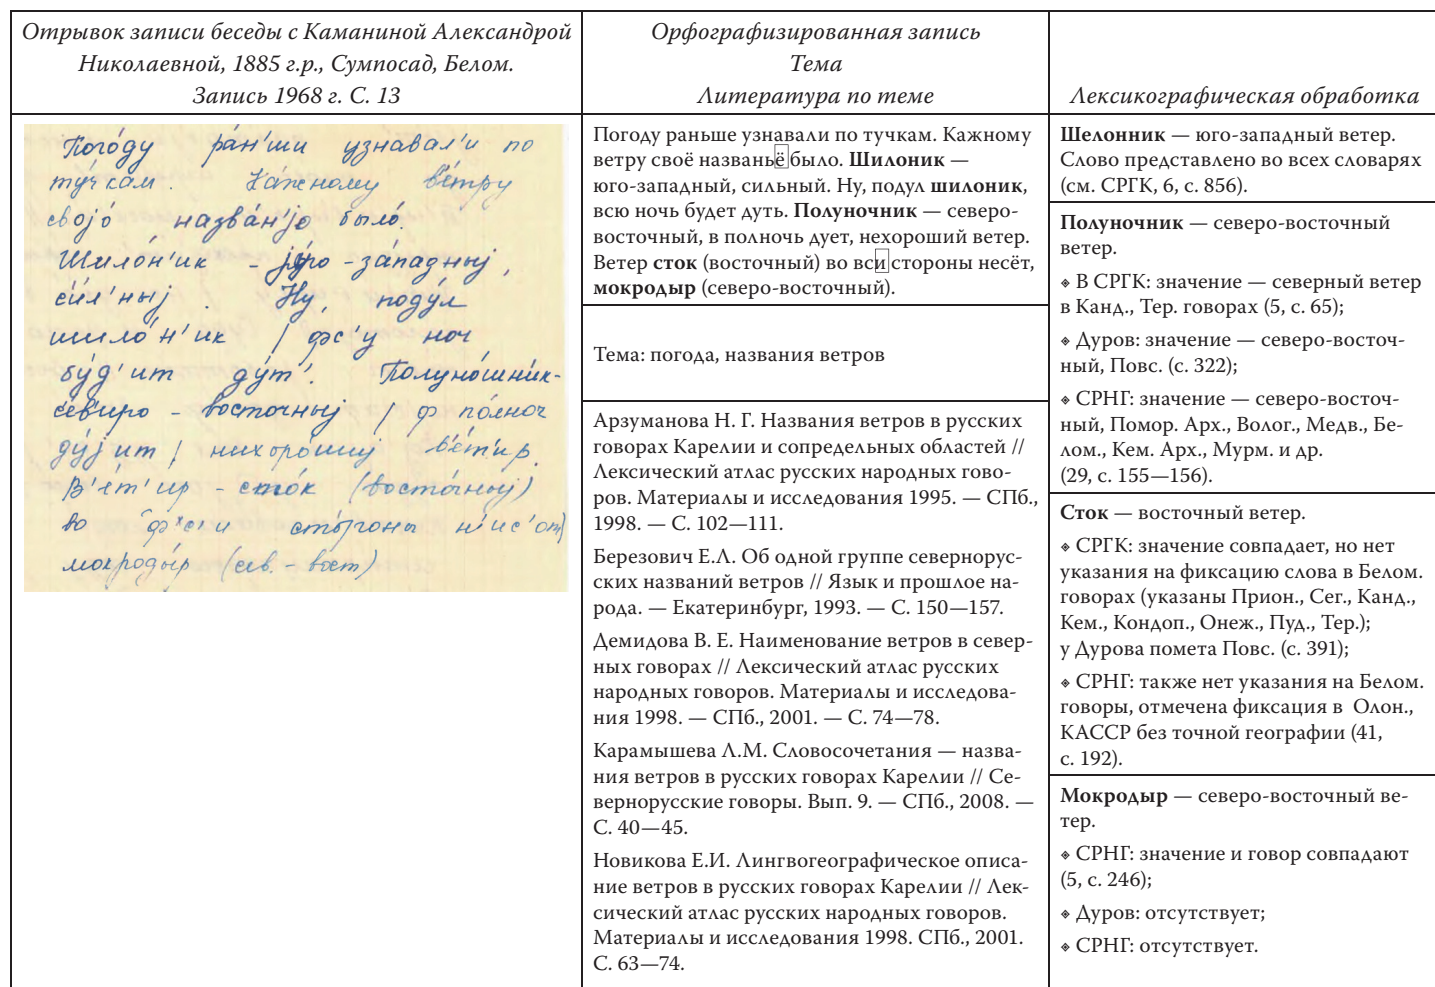 Отрывок записи беседы с Каманиной Александрой
Николаевной, 1885 г.р., Сумпосад, Белом.
Запись 1968 г. С. 13
Орфографизированная запись
Тема
Литература по теме
Лексикографическая обработка
Пого́ду ра́н'ши узнавал'и по
ту́чкам. Ка́жному ве́тру
својо́ назва́н'јо было́.
Шило́н'ик - југо-за́падныј,
си́л'ныј. Ну, поду́л
шило́н'ик / фс'у ноч
бу́д'ит ду́т'. Полуно́шник-
се́в'иро-восточныј / ф по́лноч
ду́јит / нихоро́шиј в'е́т'ир.
В'е́т'ир - сто́к (восто́чныј)
во фс'и сто́роны н'ис'от/
мокроды́р (сев.-вост)
Погоду раньше узнавали по тучкам. Кажному
ветру своё названьё было. Шилоник —
юго-западный, сильный. Ну, подул шилоник,
всю ночь будет дуть. Полуночник — северо-
восточный, в полночь дует, нехороший ветер.
Ветер сток (восточный) во вси стороны несёт,
мокродыр (северо-восточный).
Тема: погода, названия ветров
Арзуманова Н. Г. Названия ветров в русских
говорах Карелии и сопредельных областей //
Лексический атлас русских народных гово-
ров. Материалы и исследования 1995. — СПб.,
1998. — С. 102—111.
Березович Е.Л. Об одной группе севернорус-
ских названий ветров // Язык и прошлое на-
рода. — Екатеринбург, 1993. — С. 150—157.
Демидова В. Е. Наименование ветров в север-
ных говорах // Лексический атлас русских
народных говоров. Материалы и исследова-
ния 1998. — СПб., 2001. — С. 74—78.
Карамышева Л.М. Словосочетания — назва-
ния ветров в русских говорах Карелии // Се-
вернорусские говоры. Вып. 9. — СПб., 2008. —
С. 40—45.
Новикова Е.И. Лингвогеографическое описа-
ние ветров в русских говорах Карелии // Лек-
сический атлас русских народных говоров.
Материалы и исследования 1998. СПб., 2001.
С. 63—74.
Шелонник — юго-западный ветер.
Слово представлено во всех словарях
(см. СРГК, 6, с. 856).
Полуночник — северо-восточный
ветер.
◈ В СРГК: значение — северный ветер
в Канд., Тер. говорах (5, с. 65);
◈ Дуров: значение — северо-восточ-
ный, Повс. (с. 322);
◈ СРНГ: значение — северо-восточ-
ный, Помор. Арх., Волог., Медв., Бе-
лом., Кем. Арх., Мурм. и др.
(29, с. 155—156).
Сток — восточный ветер.
◈ СРГК: значение совпадает, но нет
указания на фиксацию слова в Белом.
говорах (указаны Прион., Сег., Канд.,
Кем., Кондоп., Онеж., Пуд., Тер.);
у Дурова помета Повс. (с. 391);
◈ СРНГ: также нет указания на Белом.
говоры, отмечена фиксация в Олон.,
КАССР без точной географии (41,
с. 192).
Мокродыр — северо-восточный ве-
тер.
◈ СРНГ: значение и говор совпадают
(5, с. 246);
◈ Дуров: отсутствует;
◈ СРНГ: отсутствует.